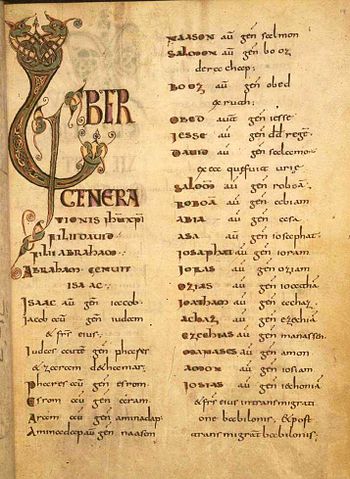 LIBER
GENERA
TIONIS ihu xpi
filii david
filii abraham
Abraham genuit
isaac
Isaac aū gen̄ iacob
Iacob aū gen̄ iudam
& frs̄ eius;
Iudas autē gen̄ phares
& zaram de thamar;
Phares aū gen̄ esrom
Esrom aū gen̄ aram
Aram aū gen̄ aminadap
Aminadap aū gen̄ naason
Naason aū gen̄ salmon
Salomon aū gen̄ booz
de rachap;
Booz aū gen̄ obed
ex ruth;
Obed aūt gen̄ iesse
Iesse aū gen̄ dd̄ regē
David aū gen̄ salamo
ex ea que fuit urie
Salom̄ aū gen̄ roboā
Roboā aū gen̄ abiam
Abia aū gen̄ asa
Asa aū gen̄ iosaphat
Iosaphat aū gen̄ ioram
Ioras aū gen̄ oziam
Ozias aū gen̄ ioatha
Ioatham aū gen̄ achaz
Achaz aū gen̄ ezechiā
Ezechias aū gen̄ manassen
Manases aū gen̄ amon
Amon aū gen̄ iosiam
Iosias aū gen̄ iechoniā
& frs̄ eius in transmigrati
one babilonis; & post
transmigrat̄ babilonis;